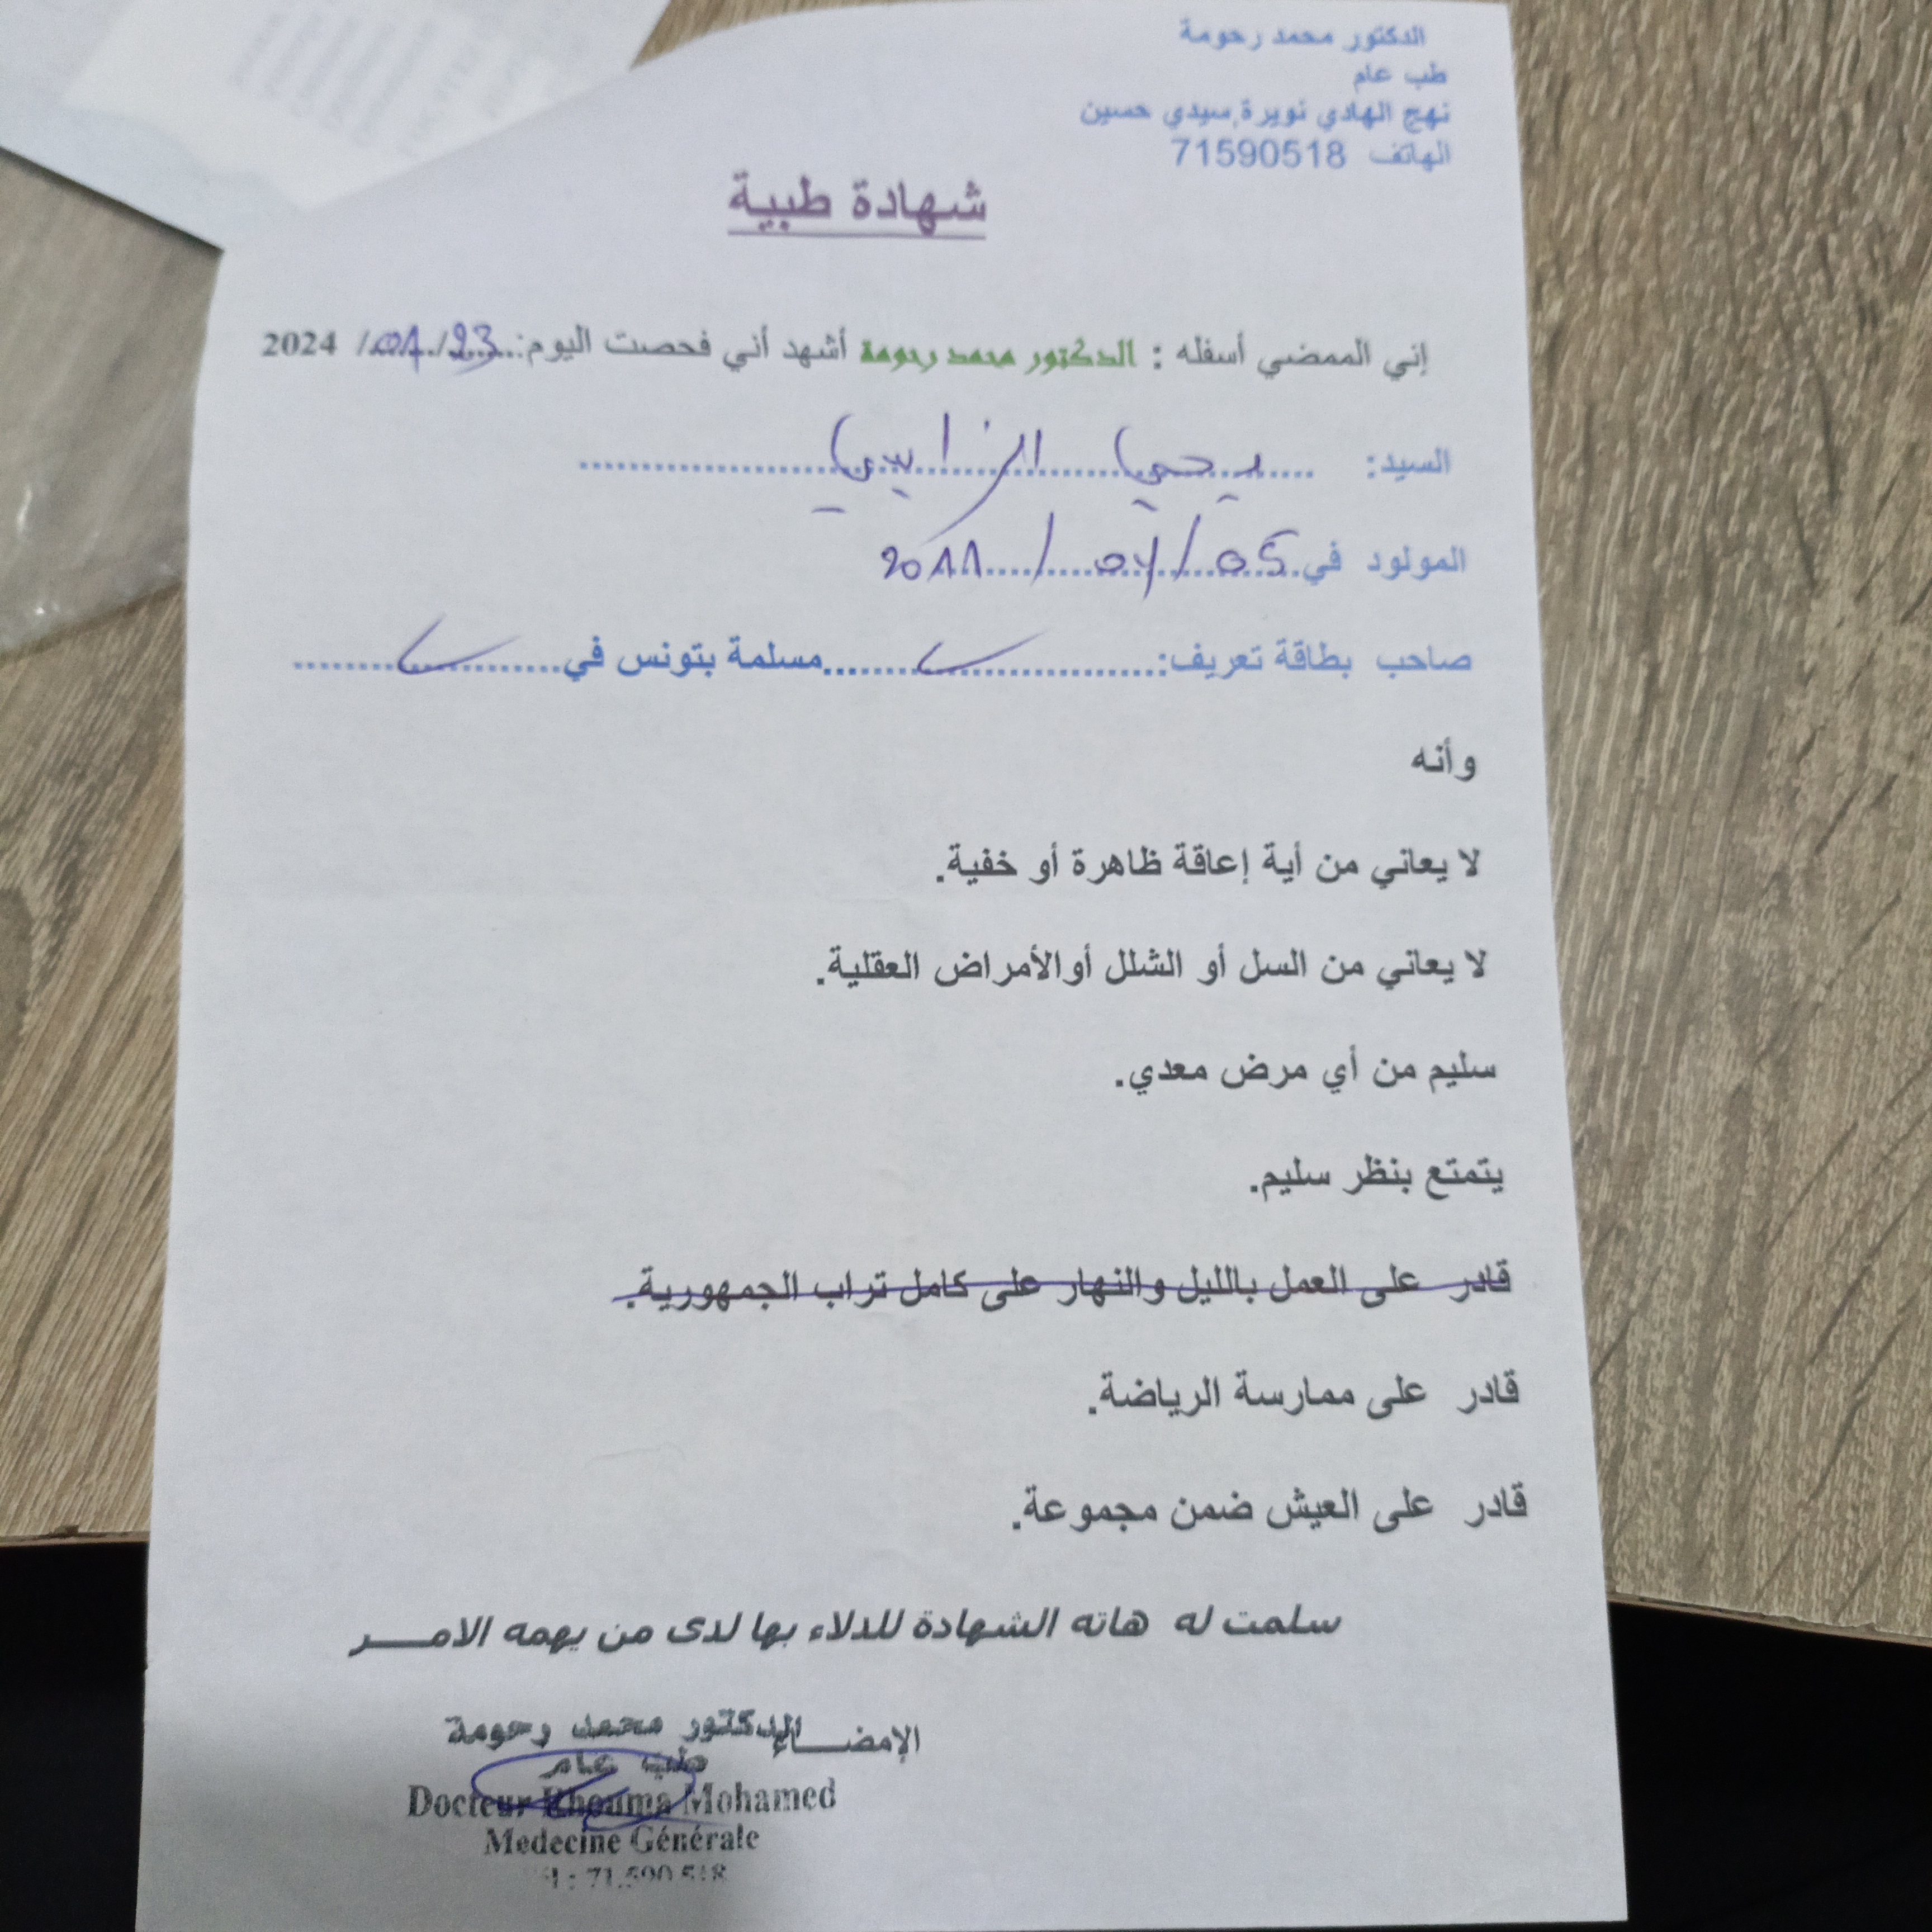 الدكتور محمد رحومة
طب عام
نهج الهادي نويرة,سيدي حسين
الهاتف 71590518
شهادة طبية
إني الممضي أسفله : الدكتور محمد رحومة أشهد أني فحصت اليوم:...23./.01./ 2024
السيد: يحيى الزايبي
المولود في 05/04/2011
صاحب بطاقة تعريف:..........مسلمة بتونس في..........
وأنه
لا يعاني من أية إعاقة ظاهرة أو خفية.
لا يعاني من السل أو الشلل أوالأمراض العقلية.
سليم من أي مرض معدي.
يتمتع بنظر سليم.
قادر على العمل بالليل والنهار على كامل تراب الجمهورية.
قادر على ممارسة الرياضة.
قادر على العيش ضمن مجموعة.
سلمت له هاته الشهادة للدلاء بها لدى من يهمه الامـــر
الإمضـــاء
الدكتور محمد رحومة
طب عام
Docteur Rhouma Mohamed
Medecine Générale
Tél : 71.590.518